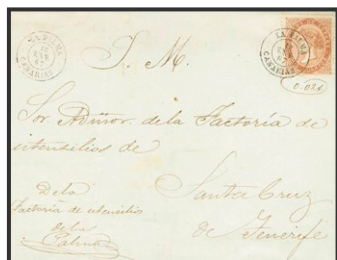 LA PALMA
CANARIAS
LA PALMA
CANARIAS
0.024
S. M.
Sor Admor. de la Factoría de
utensilios de
Santa Cruz
de Tenerife
De la
Factoria de utensilios
de la
Palma